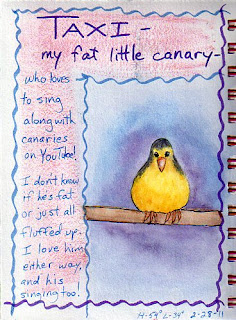 TAXI -
my fat little canary -
who loves
to sing
along with
canaries
on YouTube!
I don't know
if he's fat
or just all
fluffed up.
I love him
either way,
and his
singing too!
H-59° L-34° 2-28-11